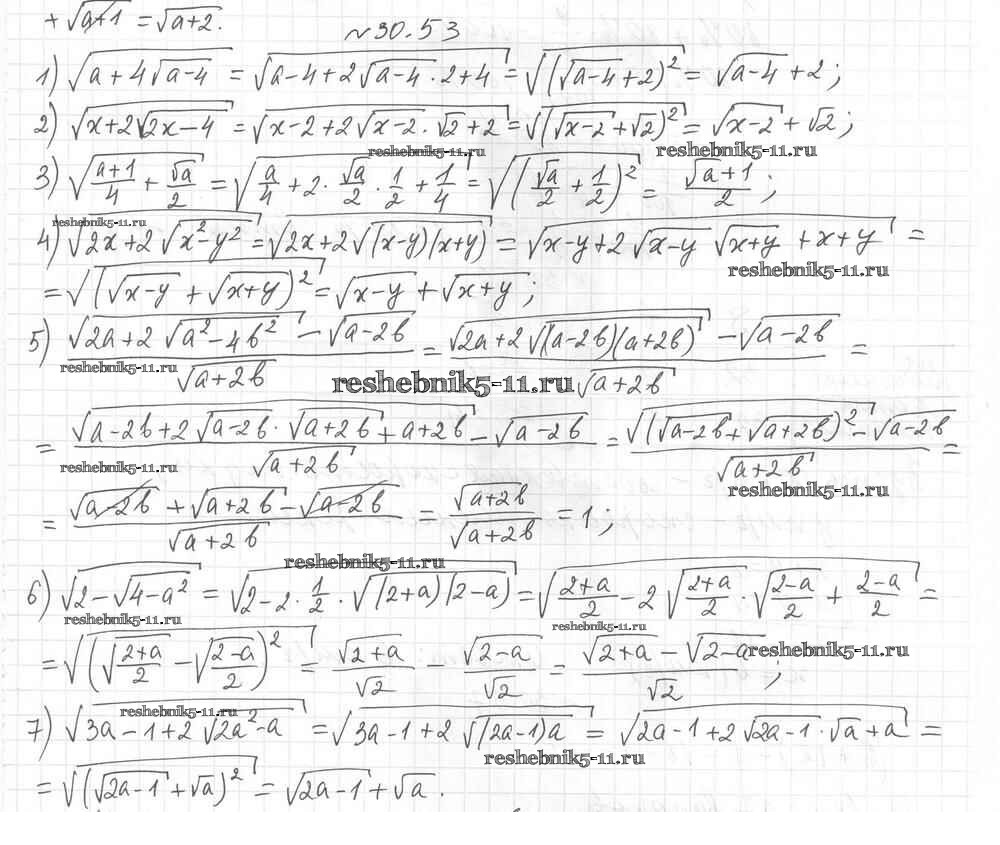 + √(a+1) = √(a+2).
№30.53
1) √(a+4√(a-4)) = √(a-4+2√(a-4)·2+4) = √((√(a-4)+2)²) = √(a-4)+2;
2) √(x+2√(2x-4)) = √(x-2+2√(x-2)·√2+2) = √((√(x-2)+√2)²) = √(x-2)+√2;
reshebnik5-11.ru reshebnik5-11.ru
3) √((a+1)/4 + √a/2) = √(a/4 + 2·√a/2·1/2 + 1/4) = √((√a/2 + 1/2)²) = (√a+1)/2;
reshebnik5-11.ru
4) √(2x+2√(x²-y²)) = √(2x+2√((x-y)(x+y))) = √(x-y+2√(x-y) √(x+y) + x+y) =
reshebnik5-11.ru
= √((√(x-y) + √(x+y))²) = √(x-y) + √(x+y);
5) (√(2a+2√(a²-4b²)) - √(a-2b))/√(a+2b) = (√(2a+2√((a-2b)(a+2b))) - √(a-2b))/√(a+2b) =
reshebnik5-11.ru reshebnik5-11.ru
= (√(a-2b+2√(a-2b)·√(a+2b)+a+2b) - √(a-2b))/√(a+2b) = (√((√(a-2b)+√(a+2b))²) - √(a-2b))/√(a+2b) =
reshebnik5-11.ru reshebnik5-11.ru
= (√(a-2b) + √(a+2b) - √(a-2b))/√(a+2b) = √(a+2b)/√(a+2b) = 1;
reshebnik5-11.ru
6) √(2-√(4-a²)) = √(2-2·1/2·√((2+a)(2-a))) = √((2+a)/2 - 2√((2+a)/2)·√((2-a)/2) + (2-a)/2) =
reshebnik5-11.ru reshebnik5-11.ru
= √((√((2+a)/2) - √((2-a)/2))²) = √(2+a)/√2 √(2-a)/√2 = (√(2+a) - √(2-a))/√2;
reshebnik5-11.ru
reshebnik5-11.ru
7) √(3a-1+2√(2a²-a)) = √(3a-1+2√((2a-1)a)) = √(2a-1+2√(2a-1)·√a+a) =
reshebnik5-11.ru
= √((√(2a-1)+√a)²) = √(2a-1)+√a.